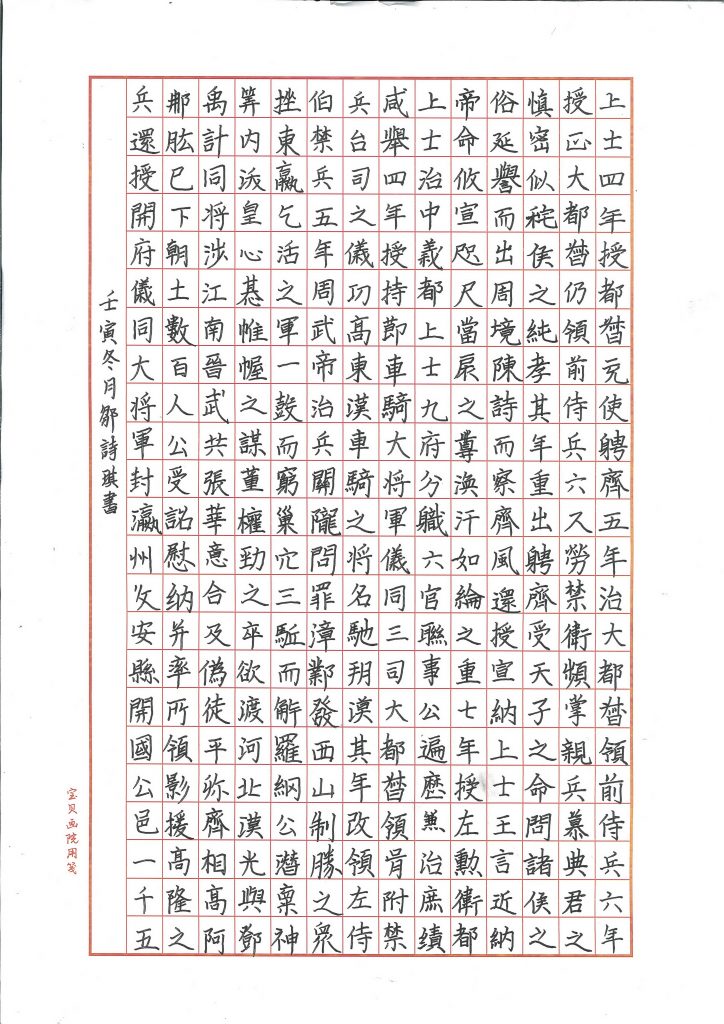 上士四年授都督充使聘齊五年治大都督領前侍兵六年
授正大都督仍領前侍兵六又勞禁衛頻掌親兵慕典君之
慎密似秺侯之純孝其年重出聘齊受天子之命問諸侯之
俗延譽而出周境陳詩而察齊風還授宣納上士王言近納
帝命攸宣咫尺當扆之尊渙汗如綸之重七年授左勳衛都
上士治中義都上士九府分職六官聯事公遍歷兼治庶績
咸舉四年授持節車騎大将軍儀同三司大都督領骨附禁
兵台司之儀功高東漢車騎之将名馳朔漠其年改領左侍
伯禁兵五年周武帝治兵關隴問罪漳鄴發西山制勝之眾
挫東嬴乞活之軍一鼓而窮巢穴三駈而觧羅網公潛稟神
筭内沃皇心惎帷幄之謀董權勁之卒欲渡河北漢光與鄧
禹計同将涉江南晉武共張華意合及偽徒平殄齊相高阿
那肱巳下朝士數百人公受詔慰納并率所領影援高隆之
兵還授開府儀同大将軍封瀛州文安縣開國公邑一千五
壬寅冬月鄒詩琪書
宝贝画院用笺